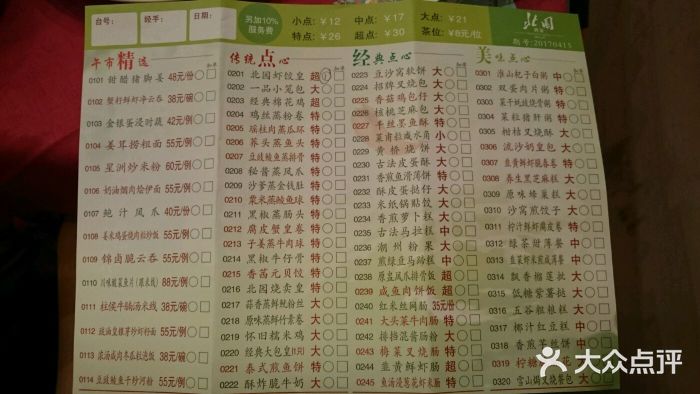 台号：
经手：
日期：
另加10%
服务费
小点：¥12 中点：¥17 大点：¥21
特点：¥26 超点：¥30 茶位：¥8元/位
北园
期号：20170415
午市精选
0101 甜醋猪脚姜 48元/份
0102 蟹籽鲜虾净云吞 38元/碗
0103 金银蛋浸时蔬 42元/例
0104 姜茸捞粗面 55元/例
0105 星洲炒米粉 60元/例
0106 奶油烟肉烩伊面 55元/例
0107 鲍汁凤爪 40元/份
0108 姜米鸡蛋烧肉粒炒饭 55元/例
0109 锦卤脆云吞 55元/例
0110 川味酸菜鱼片（跟米线） 88元/例
0111 柱侯牛腩汤米线 38元/碗
0112 豉油皇银芽炒虾籽面 55元/例
0113 浓汤咸肉冬瓜粒泡饭 38元/碗
0114 豆豉鲮鱼干炒河粉 55元/例
传统点心
0201 北园虾饺皇 超
0202 一品小笼包 大
0203 经典棉花鸡 超
0204 鸡丝蒸粉卷 特
0205 瑶柱肉蒸瓜环 特
0206 荞头蒸鱼头 特
0207 豆豉鲮鱼蒸排骨 特
0208 秘酱蒸凤爪 特
0209 沙爹蒸金钱肚 特
0210 粟米蒸鲮鱼球 特
0211 黑椒蒸肠头 特
0212 腐皮蟹皇卷 特
0213 子姜蒸牛肉球 特
0214 黑椒牛仔骨 特
0215 香茜元贝饺 特
0216 北园烧卖皇 特
0217 蒜香蒸鲜鱿粉丝 大
0218 原味蒸鲜竹素卷 大
0219 怀旧糯米鸡 大
0220 经典大包皇 大
0221 泰式煎鱼饼 特
0222 酥炸脆牛奶 大
经典点心
0223 豆沙窝软饼 大
0224 招牌叉烧包 大
0225 香菇鸡包仔 大
0226 核桃芝麻包 大
0227 干丝黑鱼酥 特
0228 菜甫粒咸水角 小
0229 黄桥烧饼 大
0230 古法皮蛋酥 大
0231 香煎鱼滑薄饼 特
0232 酥皮蛋挞仔 大
0233 米纸锅贴饺 大
0234 香煎萝卜糕 大
0235 古法马拉糕 中
0236 潮州粉果 大
0237 煎绿豆马蹄糕 中
0238 原盅凤爪排骨饭 超
0239 咸鱼肉饼饭 超
0240 红米丝网肠 35元/份
0241 大头菜牛肉肠 特
0242 排挞混酱肠粉 大
0243 梅菜叉烧肠 特
0244 韭黄鲜虾肠 超
0245 鱼汤浸葱花虾米肠 特
美味点心
0301 淮山杞子白粥 中
0302 双蛋肉片粥 特
0303 菜干蚝豉烧骨粥 特
0304 菜粒猪肝粥 特
0305 柑桔叉烧酥 大
0306 流沙奶皇包 大
0307 韭黄鲜虾脆春卷 特
0308 养生黑芝麻糕 大
0309 原味蜂巢糕 大
0310 沙窝煎饺子 大
0311 柠汁鲜虾腐皮卷 特
0312 绿茶甜薄餐 中
0313 韭菜虾米煎薄餐 中
0314 飘香榴莲挞 大
0315 低糖紫薯挞 大
0316 五谷粗粮糕 大
0317 椰汁红豆糕 中
0318 香煎茶丝饼 中
0319 柠糖
0320 雪山焗叉烧餐包 大
大众点评